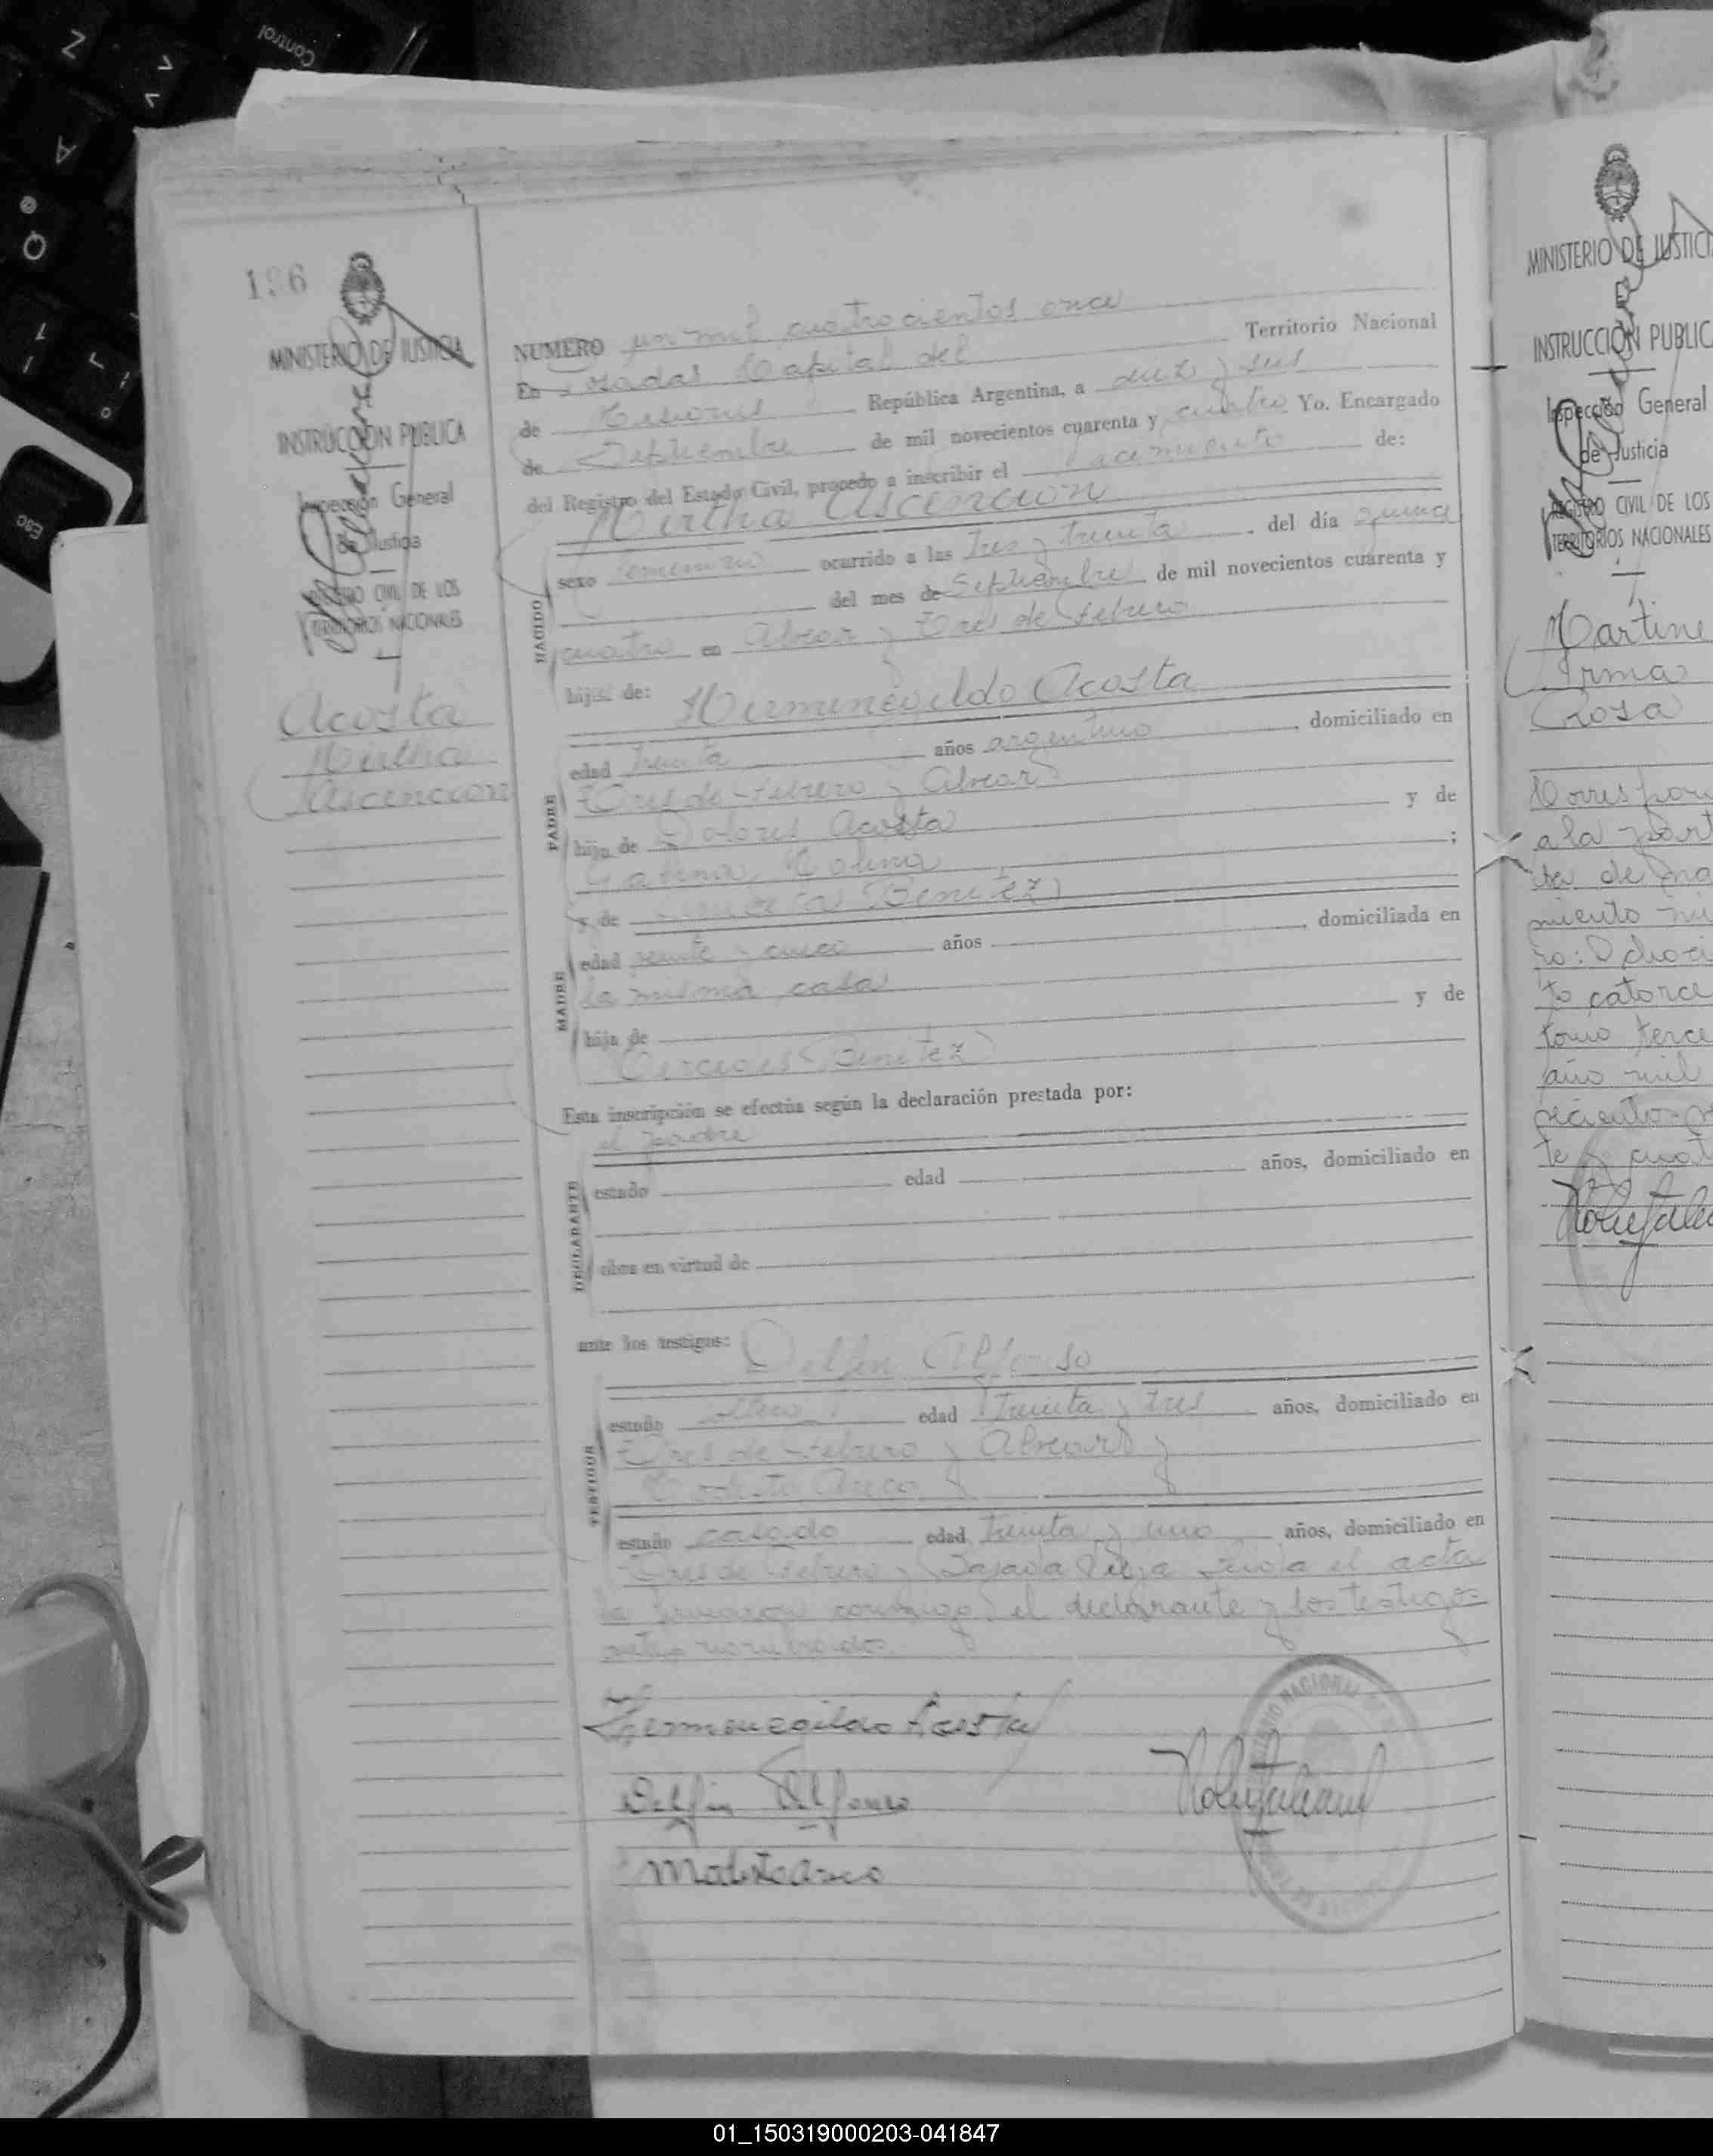 Control
Z
A
Q
Esc
196
MINISTERIO DE JUSTICIA
INSTRUCCION PUBLICA
Inspección General
de Justicia
REGISTRO CIVIL DE LOS
TERRITORIOS NACIONALES
Acosta
Mirtha
Ascencion
NUMERO un mil cuatrocientos once
En Posadas Capital del Territorio Nacional
de Misiones República Argentina, a diez y seis
de Septiembre de mil novecientos cuarenta y cuatro Yo. Encargado
del Registro del Estado Civil, procedo a inscribir el nacimiento de:
Mirtha Ascencion
NACIDO
sexo femenino ocurrido a las tres y treinta del día quince
del mes de Septiembre de mil novecientos cuarenta y
cuatro en Alvear y Tres de Febrero
hijo de: Hermenegildo Acosta
PADRE
edad treinta años argentino, domiciliado en
Tres de Febrero y Alvear
hijo de Dolores Acosta y de
Molina;
y de Benitez
MADRE
edad veinte y cinco años , domiciliada en
la misma casa
hija de y de
Benitez
Esta inscripción se efectúa según la declaración prestada por:
el padre
DECLARANTE
estado edad años, domiciliado en
obra en virtud de
ante los testigos: Delfin Alfonso
TESTIGOS
estado soltero edad treinta y tres años, domiciliado en
Tres de Febrero y Alvear y
Modesto Areco
estado casado edad treinta y uno años, domiciliado en
Tres de Febrero y Bajada Vieja Leida el acta
la firmaron conmigo el declarante y los testigos
antes nombrados.
Hermenegildo Acosta
Delfin Alfonso
Modesto Areco
NACIONAL
MINISTERIO DE JUSTICI
INSTRUCCION PUBLIC
Inspección General
de Justicia
REGISTRO CIVIL DE LOS
TERRITORIOS NACIONALES
Martine
Irma
Rosa
Corres pon
a la part
ida de na
cimiento nú
ro: Ochoci
to catorce
tomo terce
año mil
te y cuat
01_150319000203-041847